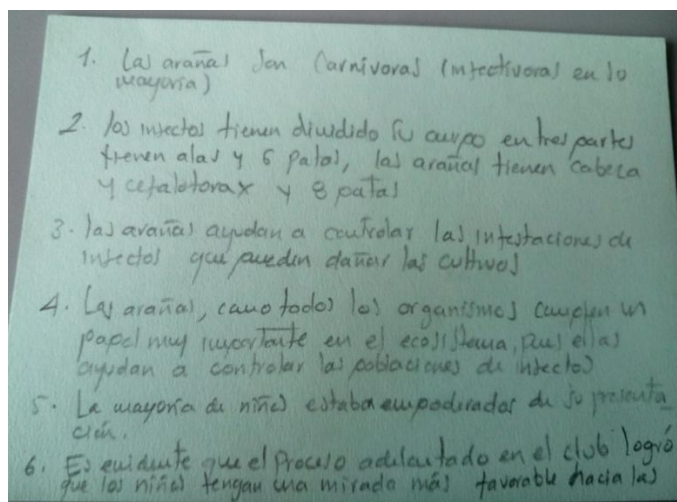 1. Las arañas son Carnívoras (insectívoras en lo
mayoría)
2. los insectos tienen dividido su cuerpo en tres partes
tienen alas y 6 patas, las arañas tienen cabeza
y cefalotorax y 8 patas
3. las arañas ayudan a controlar las infestaciones de
insectos que pueden dañar los cultivos
4. Las arañas, como todos los organismos cumplen un
papel muy importante en el ecosistema, pues ellas
ayudan a controlar las poblaciones de insectos
5. La mayoría de niños estaban empoderados de su presenta
ción.
6. Es evidente que el Proceso adelantado en el club logró
que los niños tengan una mirada más favorable hacia las